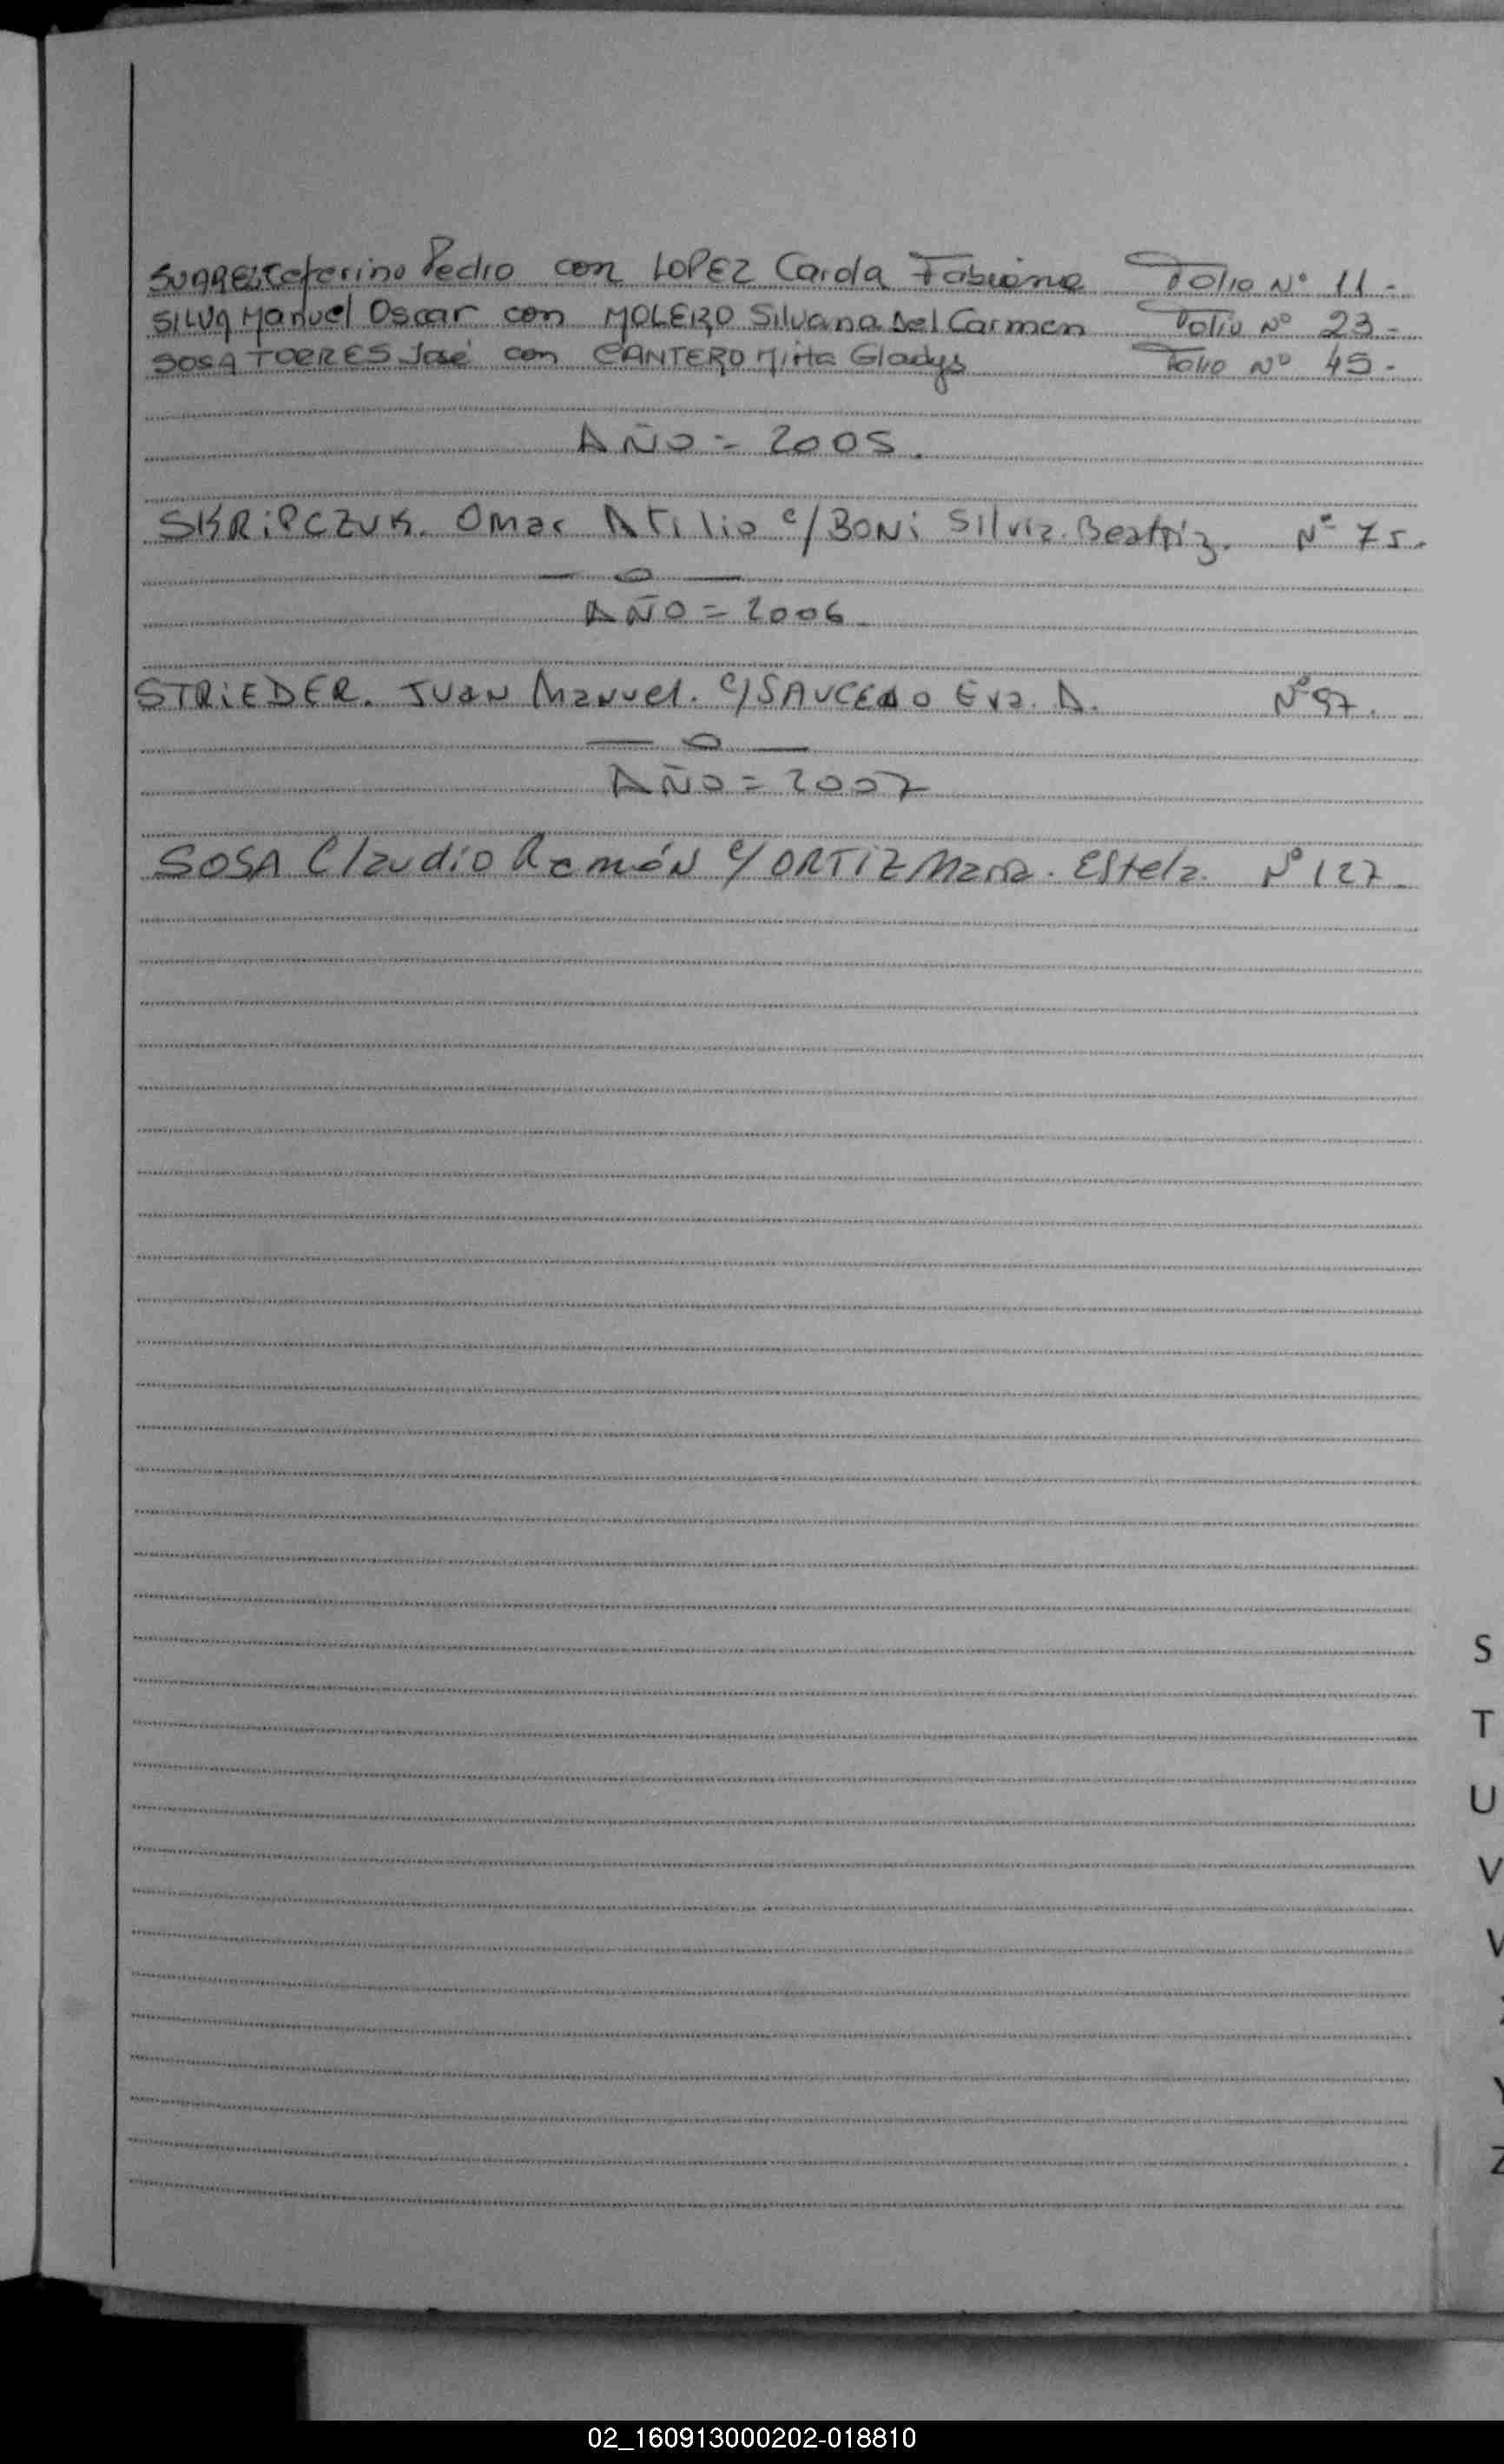 SUAREZ Ceferino Pedro con LOPEZ Carola Fabiana Folio Nº 11 -
SILVA Manuel Oscar con MOLERO Silvana Del Carmen Folio Nº 23 -
SOSA TORRES José con CANTERO Mirta Gladys Folio Nº 45 -
AÑO = 2005.
SKRiPCZUK. Omar Atilio c/ BONi Silvia. Beatriz. Nº 75.
— o —
AÑO = 2006.
STRiEDER. JUAN Manuel. c/ SAUCEDO Eva. A. Nº 97.
— o —
AÑO = 2007
SOSA Claudio Ramón c/ ORTiZ María. Estela. Nº 127.
S
T
U
V
Y
Z
02_160913000202-018810